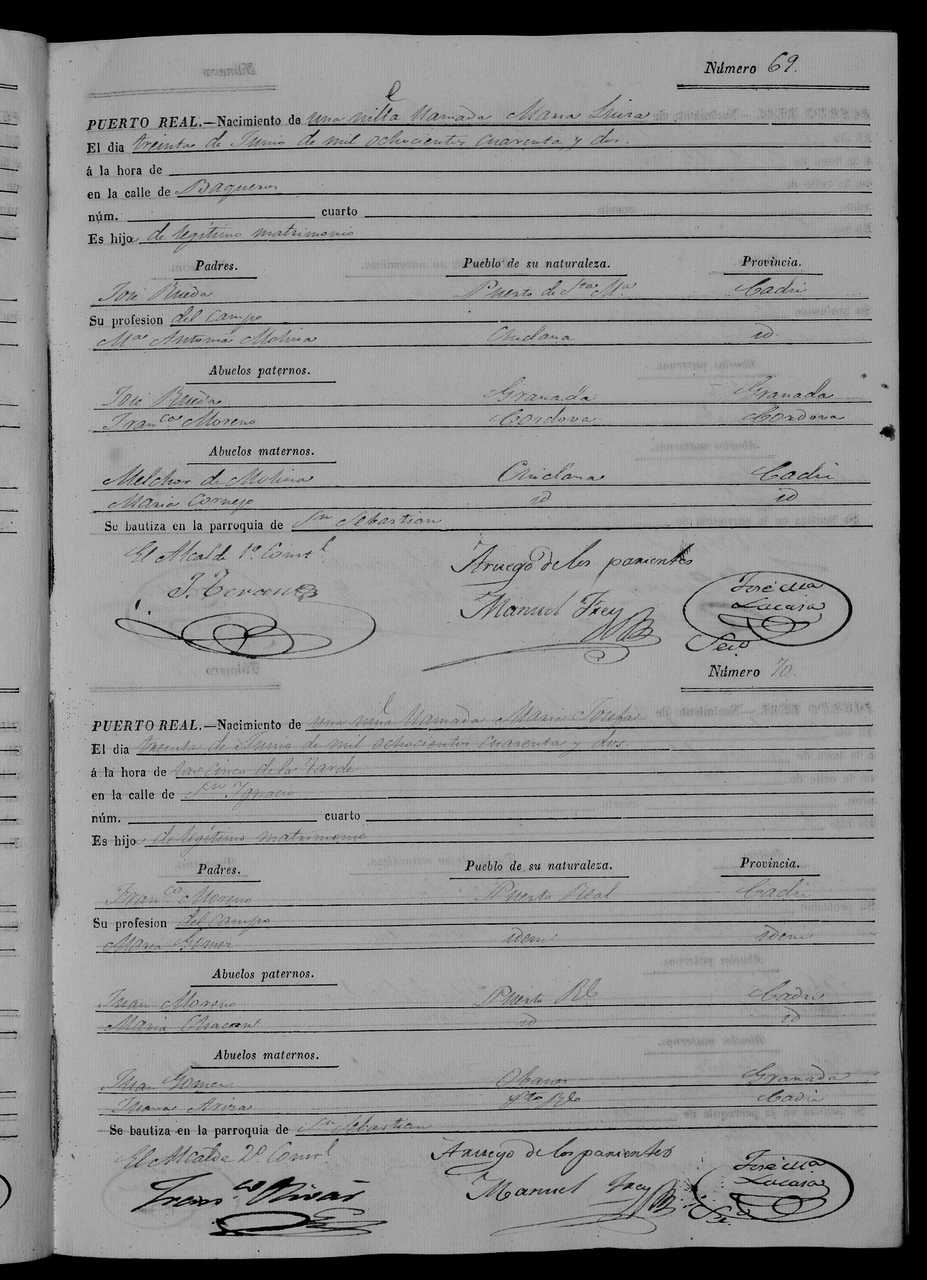 Número 69.
PUERTO REAL.—Nacimiento de una niña llamada Maria Luisa
El dia treinta de Junio de mil ochocientos cuarenta y dos.
á la hora de
en la calle de Baqueros
núm. cuarto
Es hijo de legítimo matrimonio
Padres. Pueblo de su naturaleza. Provincia.
José Rueda Puerto de Sta Ma Cadiz
Su profesion del campo
Ma Antonia Molina Chiclana id
Abuelos paternos.
José Rueda Granada Granada
Franca Moreno Cordova Cordova
Abuelos maternos.
Melchor de Molina Chiclana Cadiz
Maria Cornejo id id
Se bautiza en la parroquia de Sn Sebastian
El Alcalde 1o Constl Aruego de los parientes
Manuel Frey José Ma Lacasa
Secio
Número 70.
PUERTO REAL.—Nacimiento de una niña llamada Maria Josefa
El dia treinta de Junio de mil ochocientos cuarenta y dos.
á la hora de las cinco de la tarde
en la calle de Sn Ignacio
núm. cuarto
Es hijo de legítimo matrimonio
Padres. Pueblo de su naturaleza. Provincia.
Franco Moreno Puerto Real Cadiz
Su profesion del campo
Maria Gomez idem idem
Abuelos paternos.
Juan Moreno Puerto Rl Cadiz
Maria Chacon id id
Abuelos maternos.
Juan Gomez Granada
Juana Ariza Pto Rl Cadiz
Se bautiza en la parroquia de Sn Sebastian
El Alcalde 2o Constl Aruego de los parientes
Franco Rivas Manuel Frey José Ma Lacasa